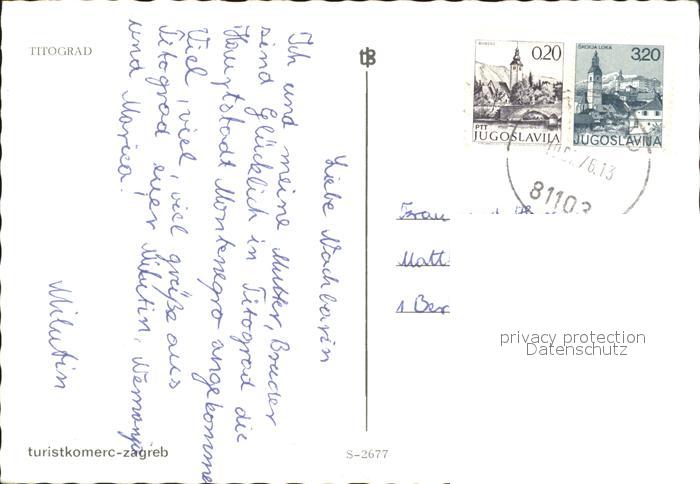 TITOGRAD
Liebe Nachbarin
Ich und meine Mutter, Bruder
sind Glücklich in Titograd die
Hauptstadt Montenegro angekomme
Viel, viel, viel grüße aus
Titograd euer Milutin, Nemanja
und Marica!
Milutin
turistkomerc-zagreb
S-2677
0,20
PTT
JUGOSLAVIJA
ŠKOFJA LOKA
3,20
JUGOSLAVIJA
76.13
81103
Frau
Matt
1 Ber
privacy protection
Datenschutz